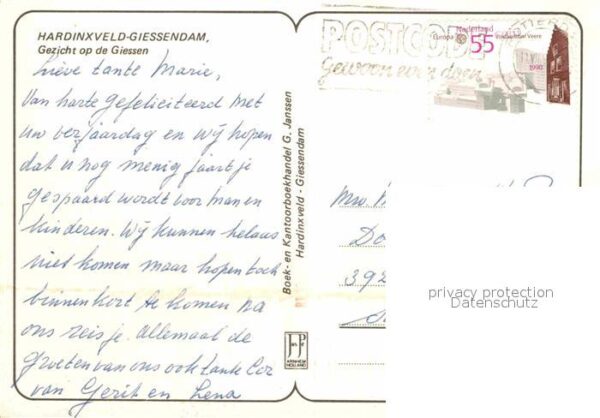 HARDINXVELD-GIESSENDAM,
Gezicht op de Giessen
Lieve tante Marie,
Van harte gefeliciteerd met
uw verjaardag en wij hopen
dat u nog menig jaartje
gespaard wordt voor man en
kinderen. Wij kunnen helaas
niet komen maar hopen toch
binnenkort te komen na
ons reisje. Allemaal de
groeten van ons ook tante Cor
van Gerit en Lena
Boek- en Kantoorboekhandel G. Janssen
Hardinxveld - Giessendam
ARNHEM
HOLLAND
POSTCODE
gewoon even doen
Nederland
Europa
55
Veere
1990
Mw.
392
privacy protection
Datenschutz